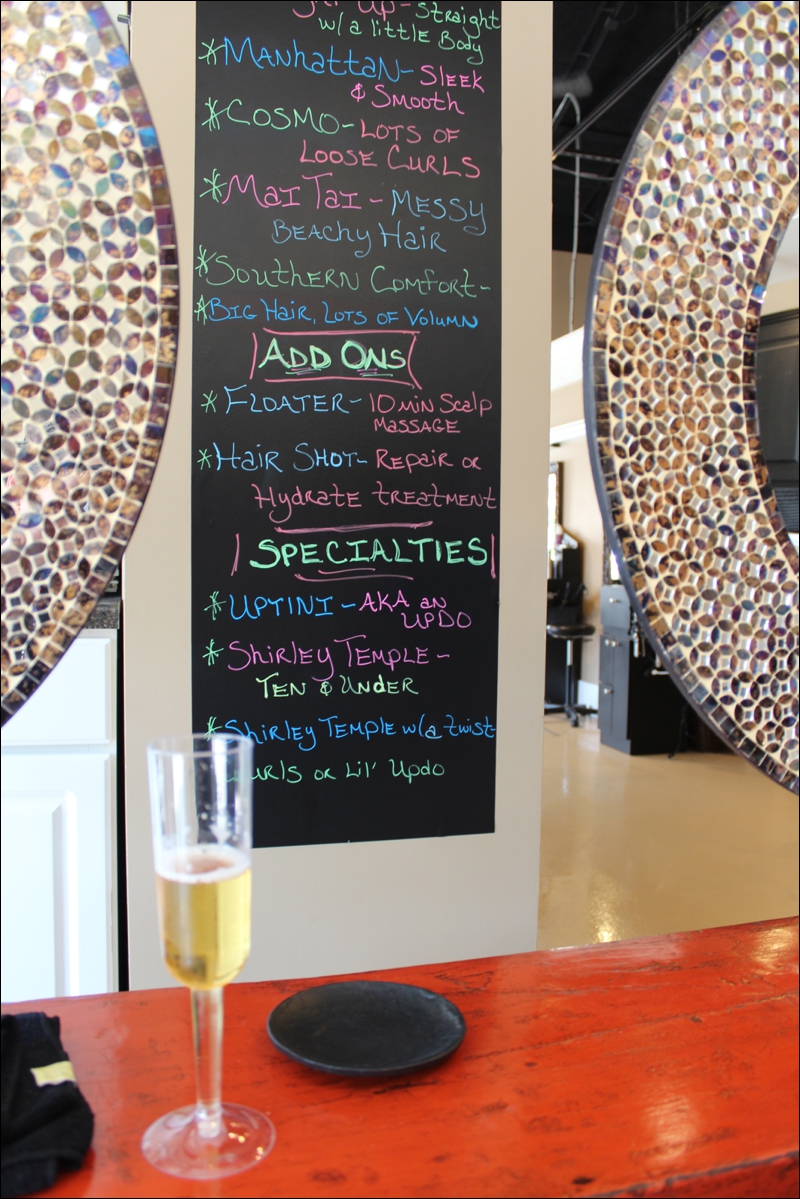 Up - Straight
w/ a little Body
*Manhattan - Sleek
& Smooth
*Cosmo - Lots of
Loose Curls
*Mai Tai - Messy
Beachy Hair
*Southern Comfort -
*Big Hair, Lots of Volumn
Add Ons
*Floater - 10 min Scalp
Massage
*Hair Shot - Repair or
Hydrate treatment
Specialties
*Uptini - AKA an
Updo
*Shirley Temple -
Ten & Under
*Shirley Temple w/a twist
Curls or Lil' Updo